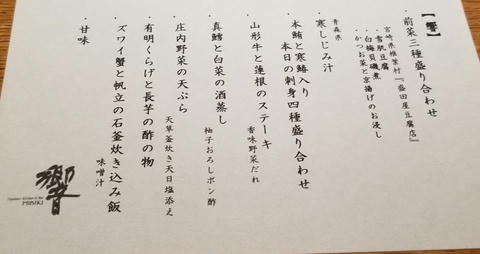 【響】
・前菜三種盛り合わせ
宮崎県椎葉村『盛田屋豆腐店』
・雪肌豆腐
・白梅貝磯煮
・かつお菜と京揚げのお浸し
青森県
・寒しじみ汁
・本鮪と寒鰆入り
本日の刺身四種盛り合わせ
・山形牛と蓮根のステーキ
香味野菜だれ
・真鱈と白菜の酒蒸し
柚子おろしポン酢
・庄内野菜の天ぷら
天草釜炊き天日塩添え
・有明くらげと長芋の酢の物
・ズワイ蟹と帆立の石釜炊き込み飯
味噌汁
・甘味
響
HIBIKI